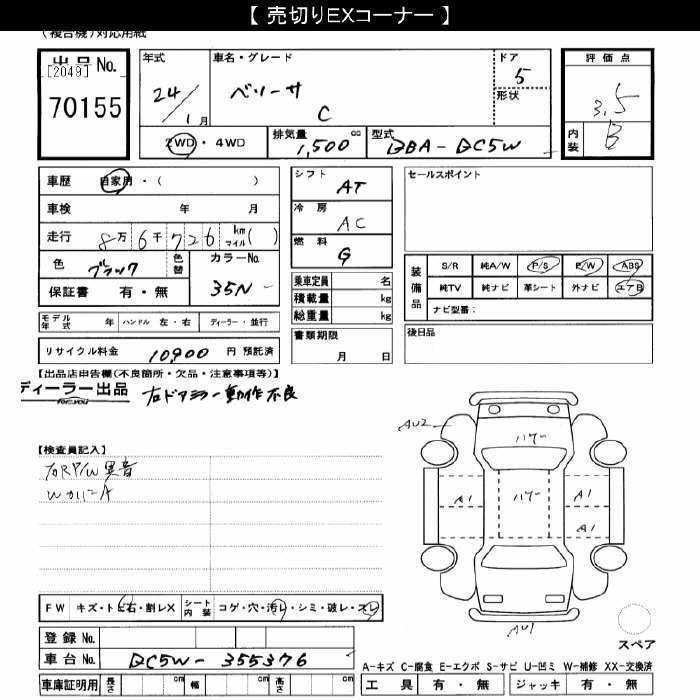 【 売切りEXコーナー 】
(複合機)対応用紙
出品 No.
[2049]
70155
年式
24/1月
車名・グレード
ベリーサ
C
ドア
5
形状
2WD・4WD
排気量
1,500 cc
型式
DBA-DC5W
評価点
3.5
内装
B
車歴 自家用・( )
車検 年 月
走行 8万6千726 km マイル( )
色 ブラック
色替
カラーNo.
35N
保証書 有・無
シフト
AT
冷房
AC
燃料
G
乗車定員 名
積載量 kg
総重量 kg
セールスポイント
装備品
S/R 純A/W P/S P/W ABS
純TV 純ナビ 革シート 外ナビ エアB
ナビ型番:
モデル年式 年 ハンドル 左・右 ディーラー・並行
リサイクル料金 10,900 円 預託済
書類期限
月 日
後日品
【出品店申告欄(不良箇所・欠品・注意事項等)】
ディーラー出品
右ドアミラー動作不良
【検査員記入】
右RP/W異音
WカバーA
AU2
ハゲー
A1
ハゲー
A1
A1
AU1
スペア
FW キズ・トビ石・割レX
シート内装 コゲ・穴・汚レ・シミ・破レ・スレ
登録 No.
車台 No.
DC5W-355376
A-キズ C-腐食 E-エクボ S-サビ U-凹ミ W-補修 XX-交換済
車庫証明用 長さ cm 幅 cm 高さ cm
工具 有・無 ジャッキ 有・無